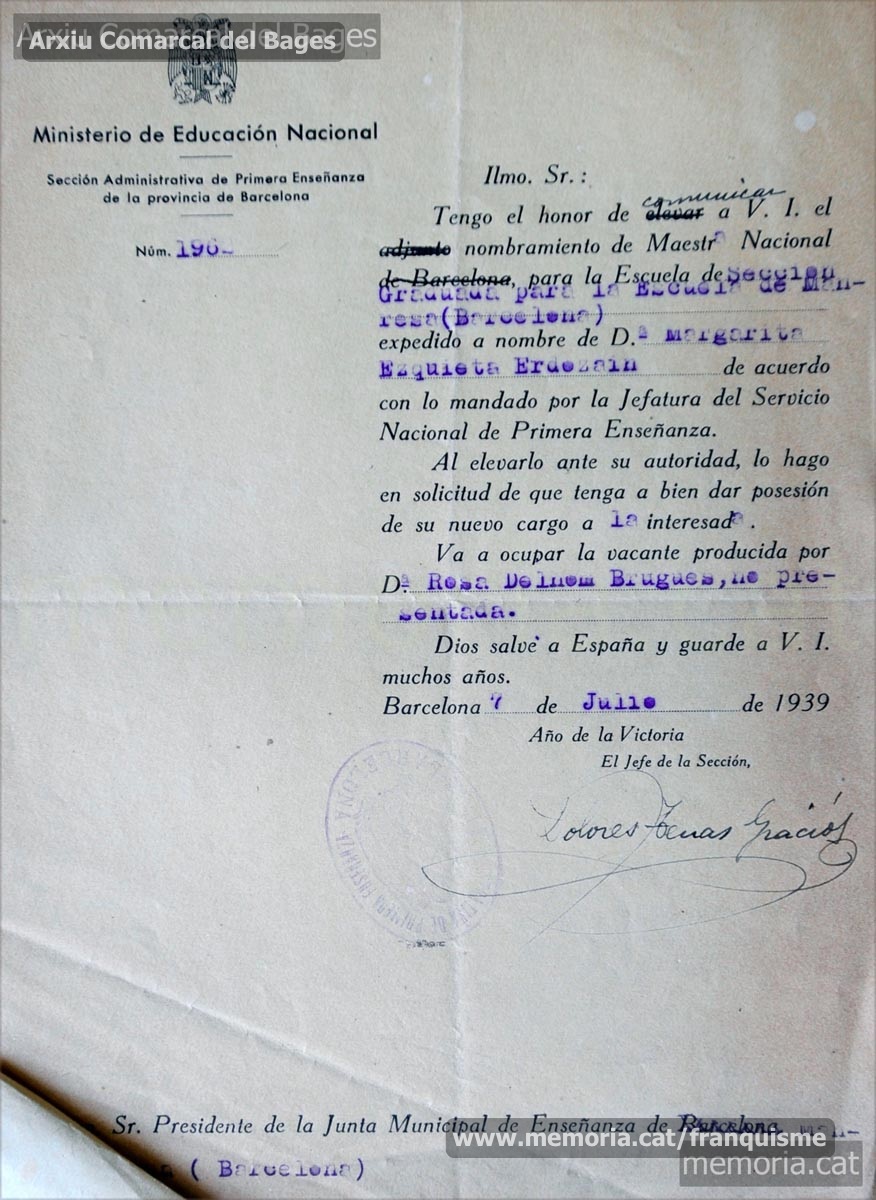 Arxiu Comarcal del Bages
Arxiu Comarcal del Bages
Ministerio de Educación Nacional
Sección Administrativa de Primera Enseñanza
de la provincia de Barcelona
Núm. 196
Ilmo. Sr. :
comunicar
Tengo el honor de elevar a V. I. el
adjunto nombramiento de Maestra Nacional
de Barcelona, para la Escuela de Sección
Graduada para la Escuela de Man-
resa(Barcelona)
expedido a nombre de D.ª Margarita
Ezquieta Erdozain de acuerdo
con lo mandado por la Jefatura del Servicio
Nacional de Primera Enseñanza.
Al elevarlo ante su autoridad, lo hago
en solicitud de que tenga a bien dar posesión
de su nuevo cargo a la interesada.
Va a ocupar la vacante producida por
D.ª Rosa Delhom Brugues, no pre-
sentada.
Dios salve a España y guarde a V. I.
muchos años.
Barcelona 7 de Julio de 1939
Año de la Victoria
El Jefe de la Sección,
Dolores Tenas Graciós
DE PRIMERA ENSEÑANZA BARCELONA
Sr. Presidente de la Junta Municipal de Enseñanza de Barcelona Man-
( Barcelona)
www.memoria.cat/franquisme
memoria.cat